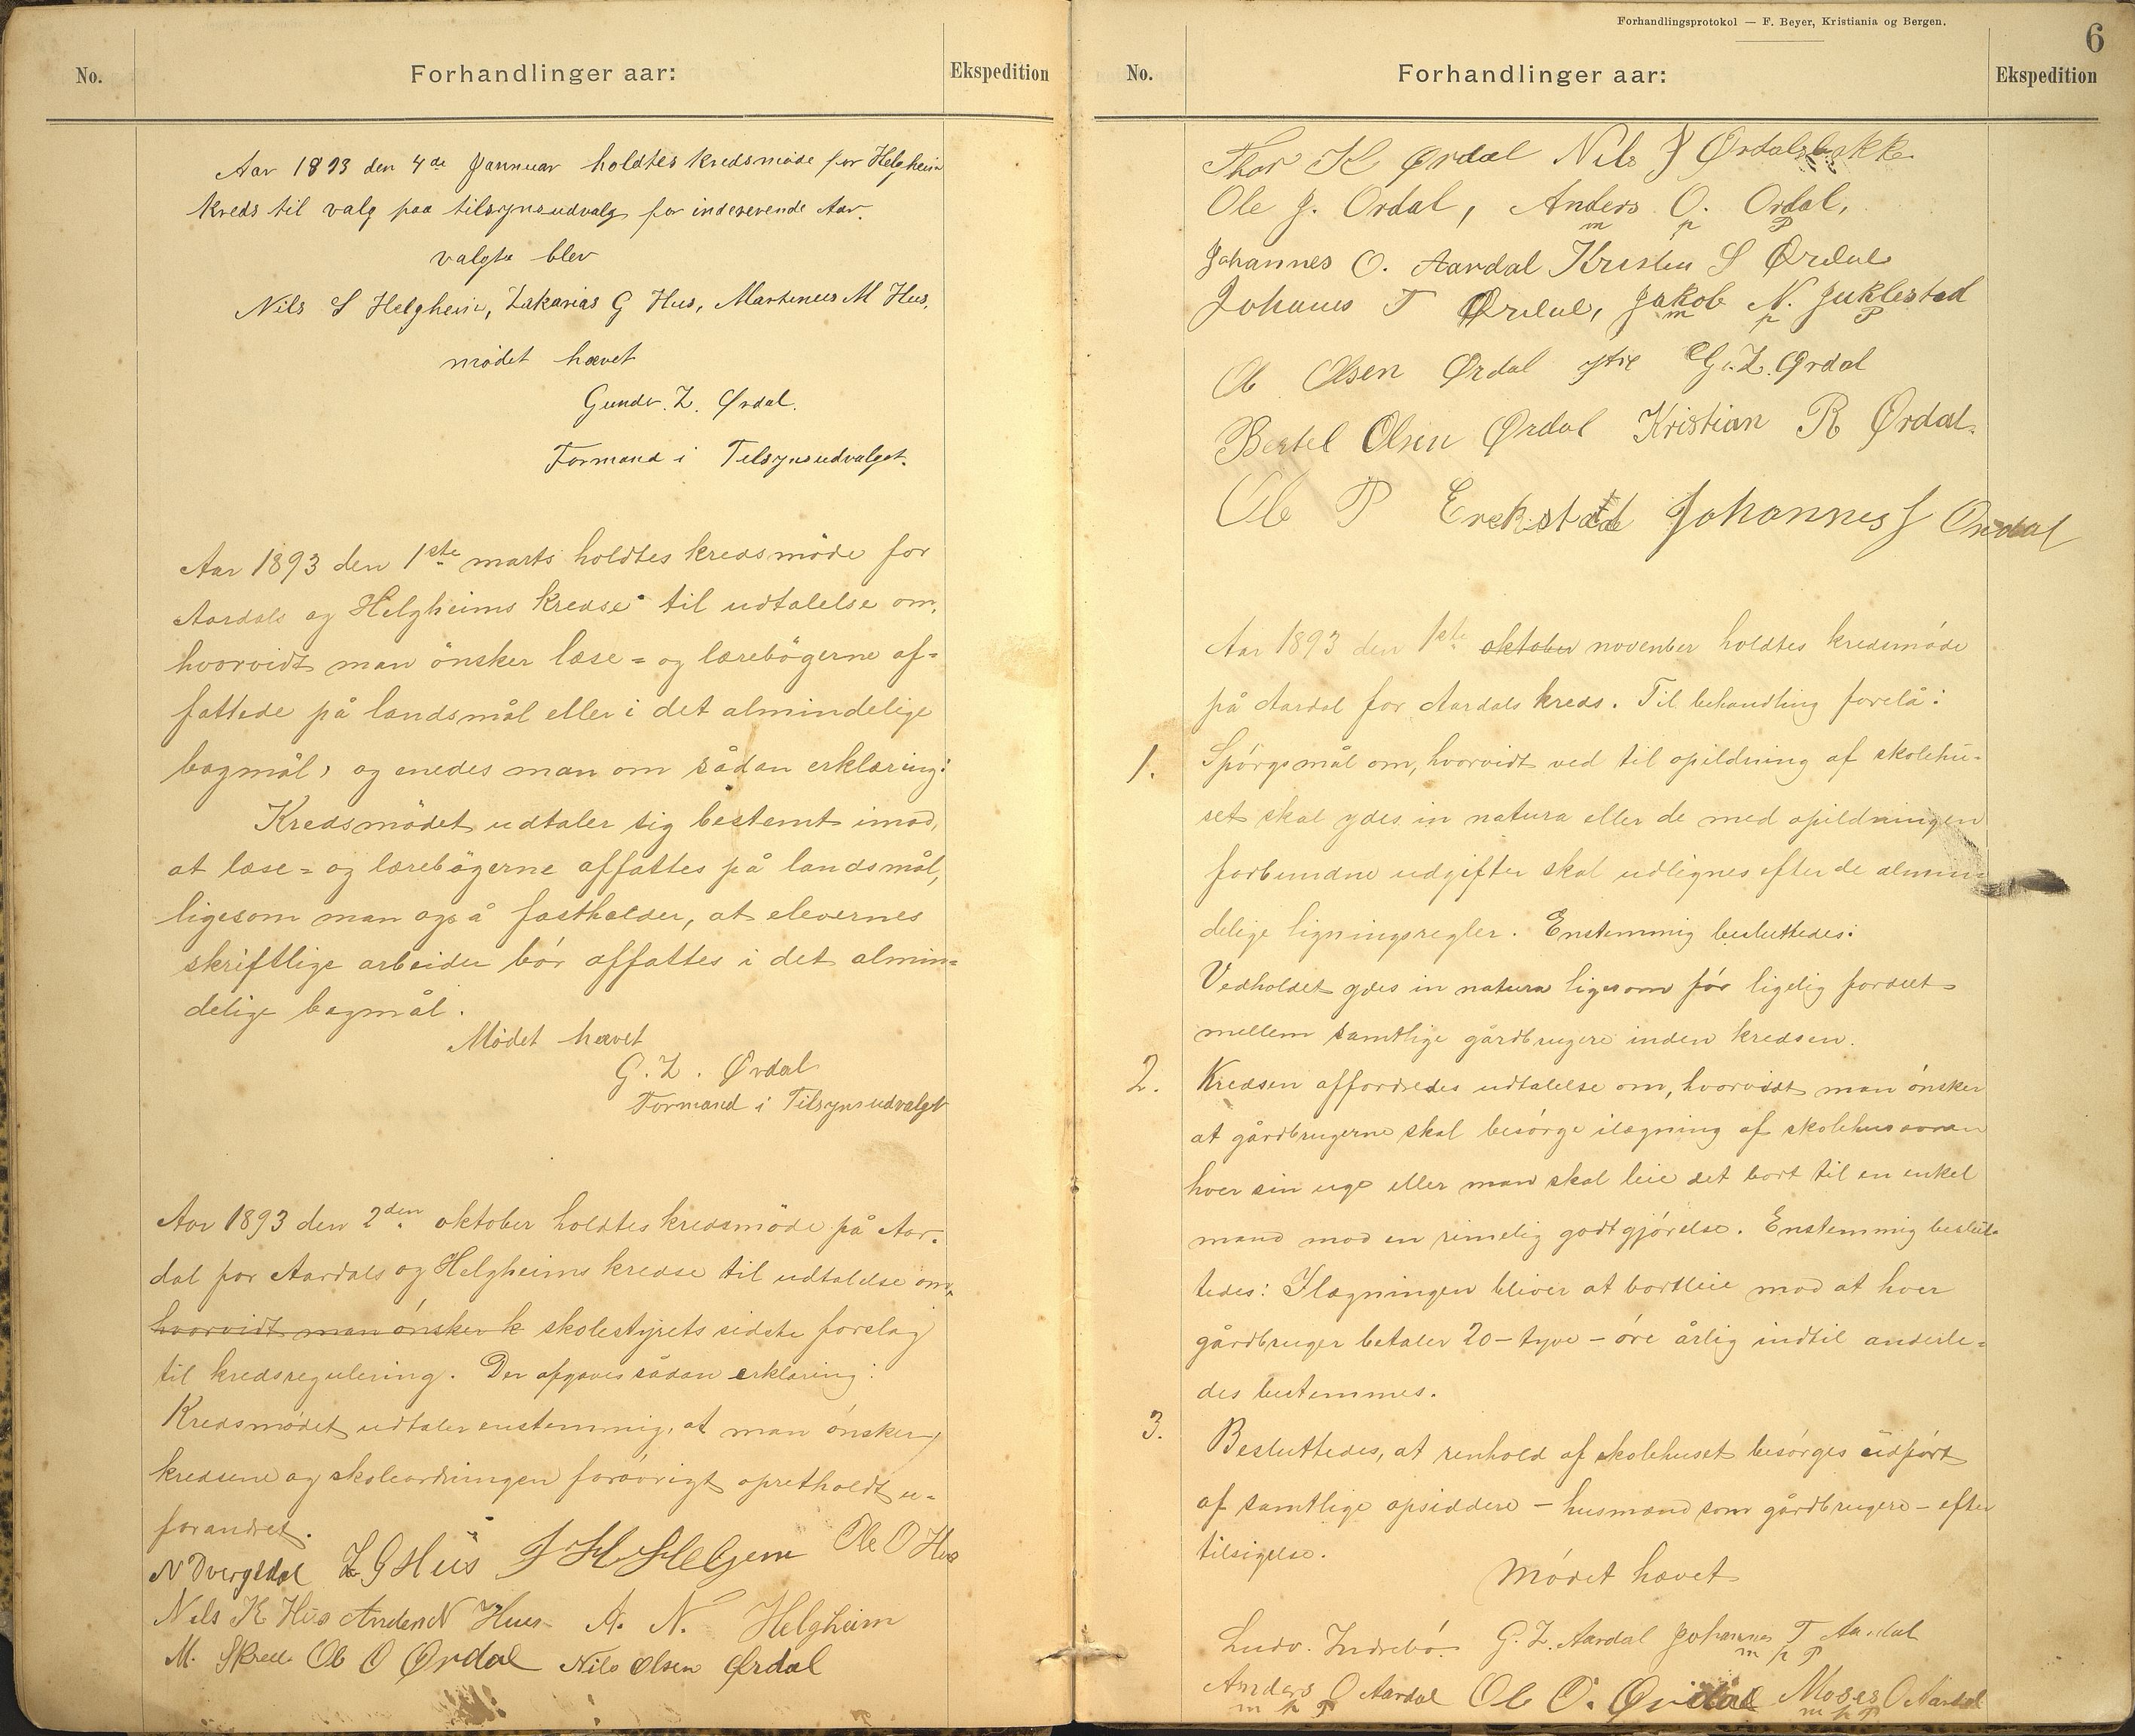 No.
Forhandlinger aar:
Ekspedition
Aar 1893 den 4de Jannuar holdtes kredsmøde for Helgheim
kreds til valg paa tilsynsudvalg for indeværende Aar.
valgte blev
Nils S Helgheim, Zakarias G Hus, Martinus M Hus.
mødet hævet
Gunder. Z. Ørdal.
Formand i Tilsynsudvalget.
Aar 1893 den 1ste marts holdtes kredsmöde for
Aardals og Helgheims kredse til udtalelse om,
hvorvidt man önsker læse= og lærebögerne af=
fattede på landsmål eller i det almindelige
bogmål, og enedes man om sådan erklæring:
Kredsmödet udtaler sig bestemt imod,
at læse= og lærebögerne affattes på landsmål,
ligesom man også fastholder, at elevernes
skriftlige arbeider bör affattes i det almin=
delige bogmål.
Mödet hævet
G. Z. Ørdal
Formand i Tilsynsudvalget
Aar 1893 den 2den oktober holdtes kredsmöde på Aar=
dal for Aardals og Helgheims kredse til udtalelse om,
hvorvidt man önsker k skolestyrets sidste forslag
til kredsregulering. Der afgaves sådan erklæring:
Kredsmödet udtaler enstemmig, at man önsker
kredsene og skoleordningen foröVrigt opretholdt u=
forandret.
N Dvergsdal Z. G Hus Helgem Ole O Hus
Nils K Hus Anders N Hus A. N. Helgheim
M. Skrede Ole O Ørdal Nils Olsen Ørdal
Forhandlingsprotokol — F. Beyer, Kristiania og Bergen.
6
No.
Forhandlinger aar:
Ekspedition
Thor K Ørdal Nils J Ørdalsbakke
Ole J. Ordal, Anders O. Ordal,
m p P
Johannes O. Aardal Kristen S Ørdal
Johanes T Ørdal, Jakob N. Juklestad
m p P
Ole Olsen Ørdal G. Z. Ørdal
Bertel Olsen Ørdal Kristian R Ørdal.
Ole P Johannes J Ørdal
Aar 1893 den 1ste oktober november holdtes kredsmöde
på Aardal for Aardals kreds. Til behandling forelå:
1. Spörgsmål om, hvorvidt ved til opildning af skolehu=
set skal ydes in natura eller de med opildningen
forbundne udgifter skal udlignes efter de almin=
delige ligningsregler. Enstemmig besluttedes:
Vedholdet ydes in natura ligesom för ligelig fordelt
mellem samtlige gårdbrugere inden kredsen.
2. Kredsen affordredes udtalelse om, hvorvidt man önsker
at gårdbrugerne skal besörge ilægning af skolehusovnen
hver sin uge eller man skal leie det bort til en enkel
mand mod en rimelig godtgjörelse. Enstemmig beslut=
tedes: Ilægningen bliver at bortleie mod at hver
gårdbruger betaler 20 – tyve – öre årlig indtil anderle=
des bestemmes.
3. Besluttedes, at renhold af skolehuset besörges udfört
af samtlige opsiddere – husmænd som gårdbrugere – efter
tilsigelse.
Mödet hævet
Ludv. Indrebö. G. Z. Aardal Johannes T Aardal
m p P
Anders O Aardal Ole O. Ørdal Moses O Aardal
m p P m p P